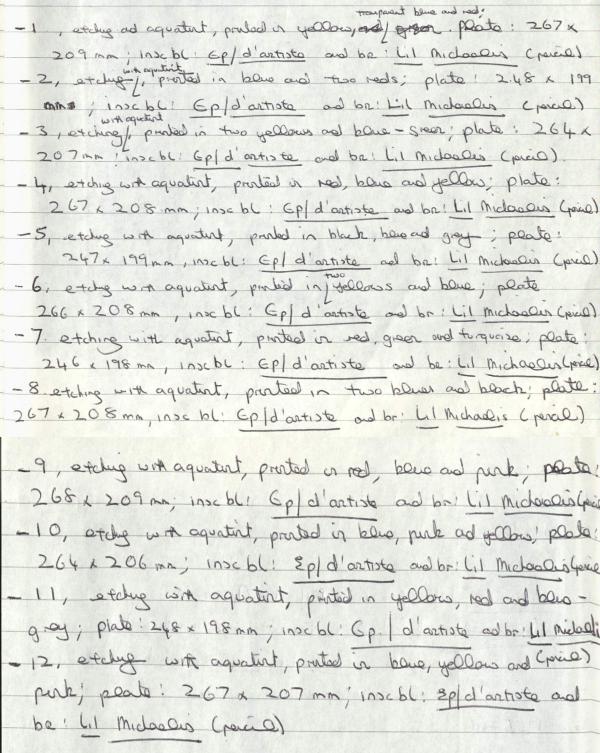 transparent blue and red.
-1, etching and aquatint, printed in yellow, plate: 267 x
209 mm; insc bl: Ep/d'artiste and br: Lil Michaelis (pencil)
with aquatint
-2, etching, printed in blue and two reds; plate: 248 x 199
mm; insc bl: Ep/d'artiste and br: Lil Michaelis (pencil)
with aquatint
-3, etching, printed in two yellows and blue-green; plate: 264 x
207 mm; insc bl: Ep/d'artiste and br: Lil Michaelis (pencil).
-4, etching with aquatint, printed in red, blue and yellow; plate:
267 x 208 mm; insc bl: Ep/d'artiste and br: Lil Michaelis (pencil)
-5, etching with aquatint, printed in black, blue and grey; plate:
247 x 199 mm, insc bl: Ep/d'artiste and br: Lil Michaelis (pencil)
two
-6, etching with aquatint, printed in yellows and blue; plate
266 x 208 mm, insc bl: Ep/d'artiste and br: Lil Michaelis (pencil)
-7. etching with aquatint, printed in red, green and turquoise; plate:
246 x 198 mm, insc bl: Ep/d'artiste and br: Lil Michaelis (pencil)
-8. etching with aquatint, printed in two blues and black; plate:
267 x 208 mm, insc bl: Ep/d'artiste and br: Lil Michaelis (pencil)
-9, etching with aquatint, printed in red, blue and pink; plate:
268 x 209 mm; insc bl: Ep/d'artiste and br: Lil Michaelis (pencil
-10, etching with aquatint, printed in blue, pink and yellow; plate:
264 x 206 mm; insc bl: Ep/d'artiste and br: Lil Michaelis (pencil
-11, etching with aquatint, printed in yellow, red and blue-
grey; plate: 248 x 198 mm; insc bl: Ep./d'artiste and br: Lil Michaelis
(pencil)
-12, etching with aquatint, printed in blue, yellow and
pink; plate: 267 x 207 mm; insc bl: Ep/d'artiste and
br: Lil Michaelis (pencil)